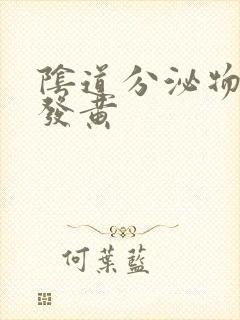 陰道分泌物
發黄
何葉藍